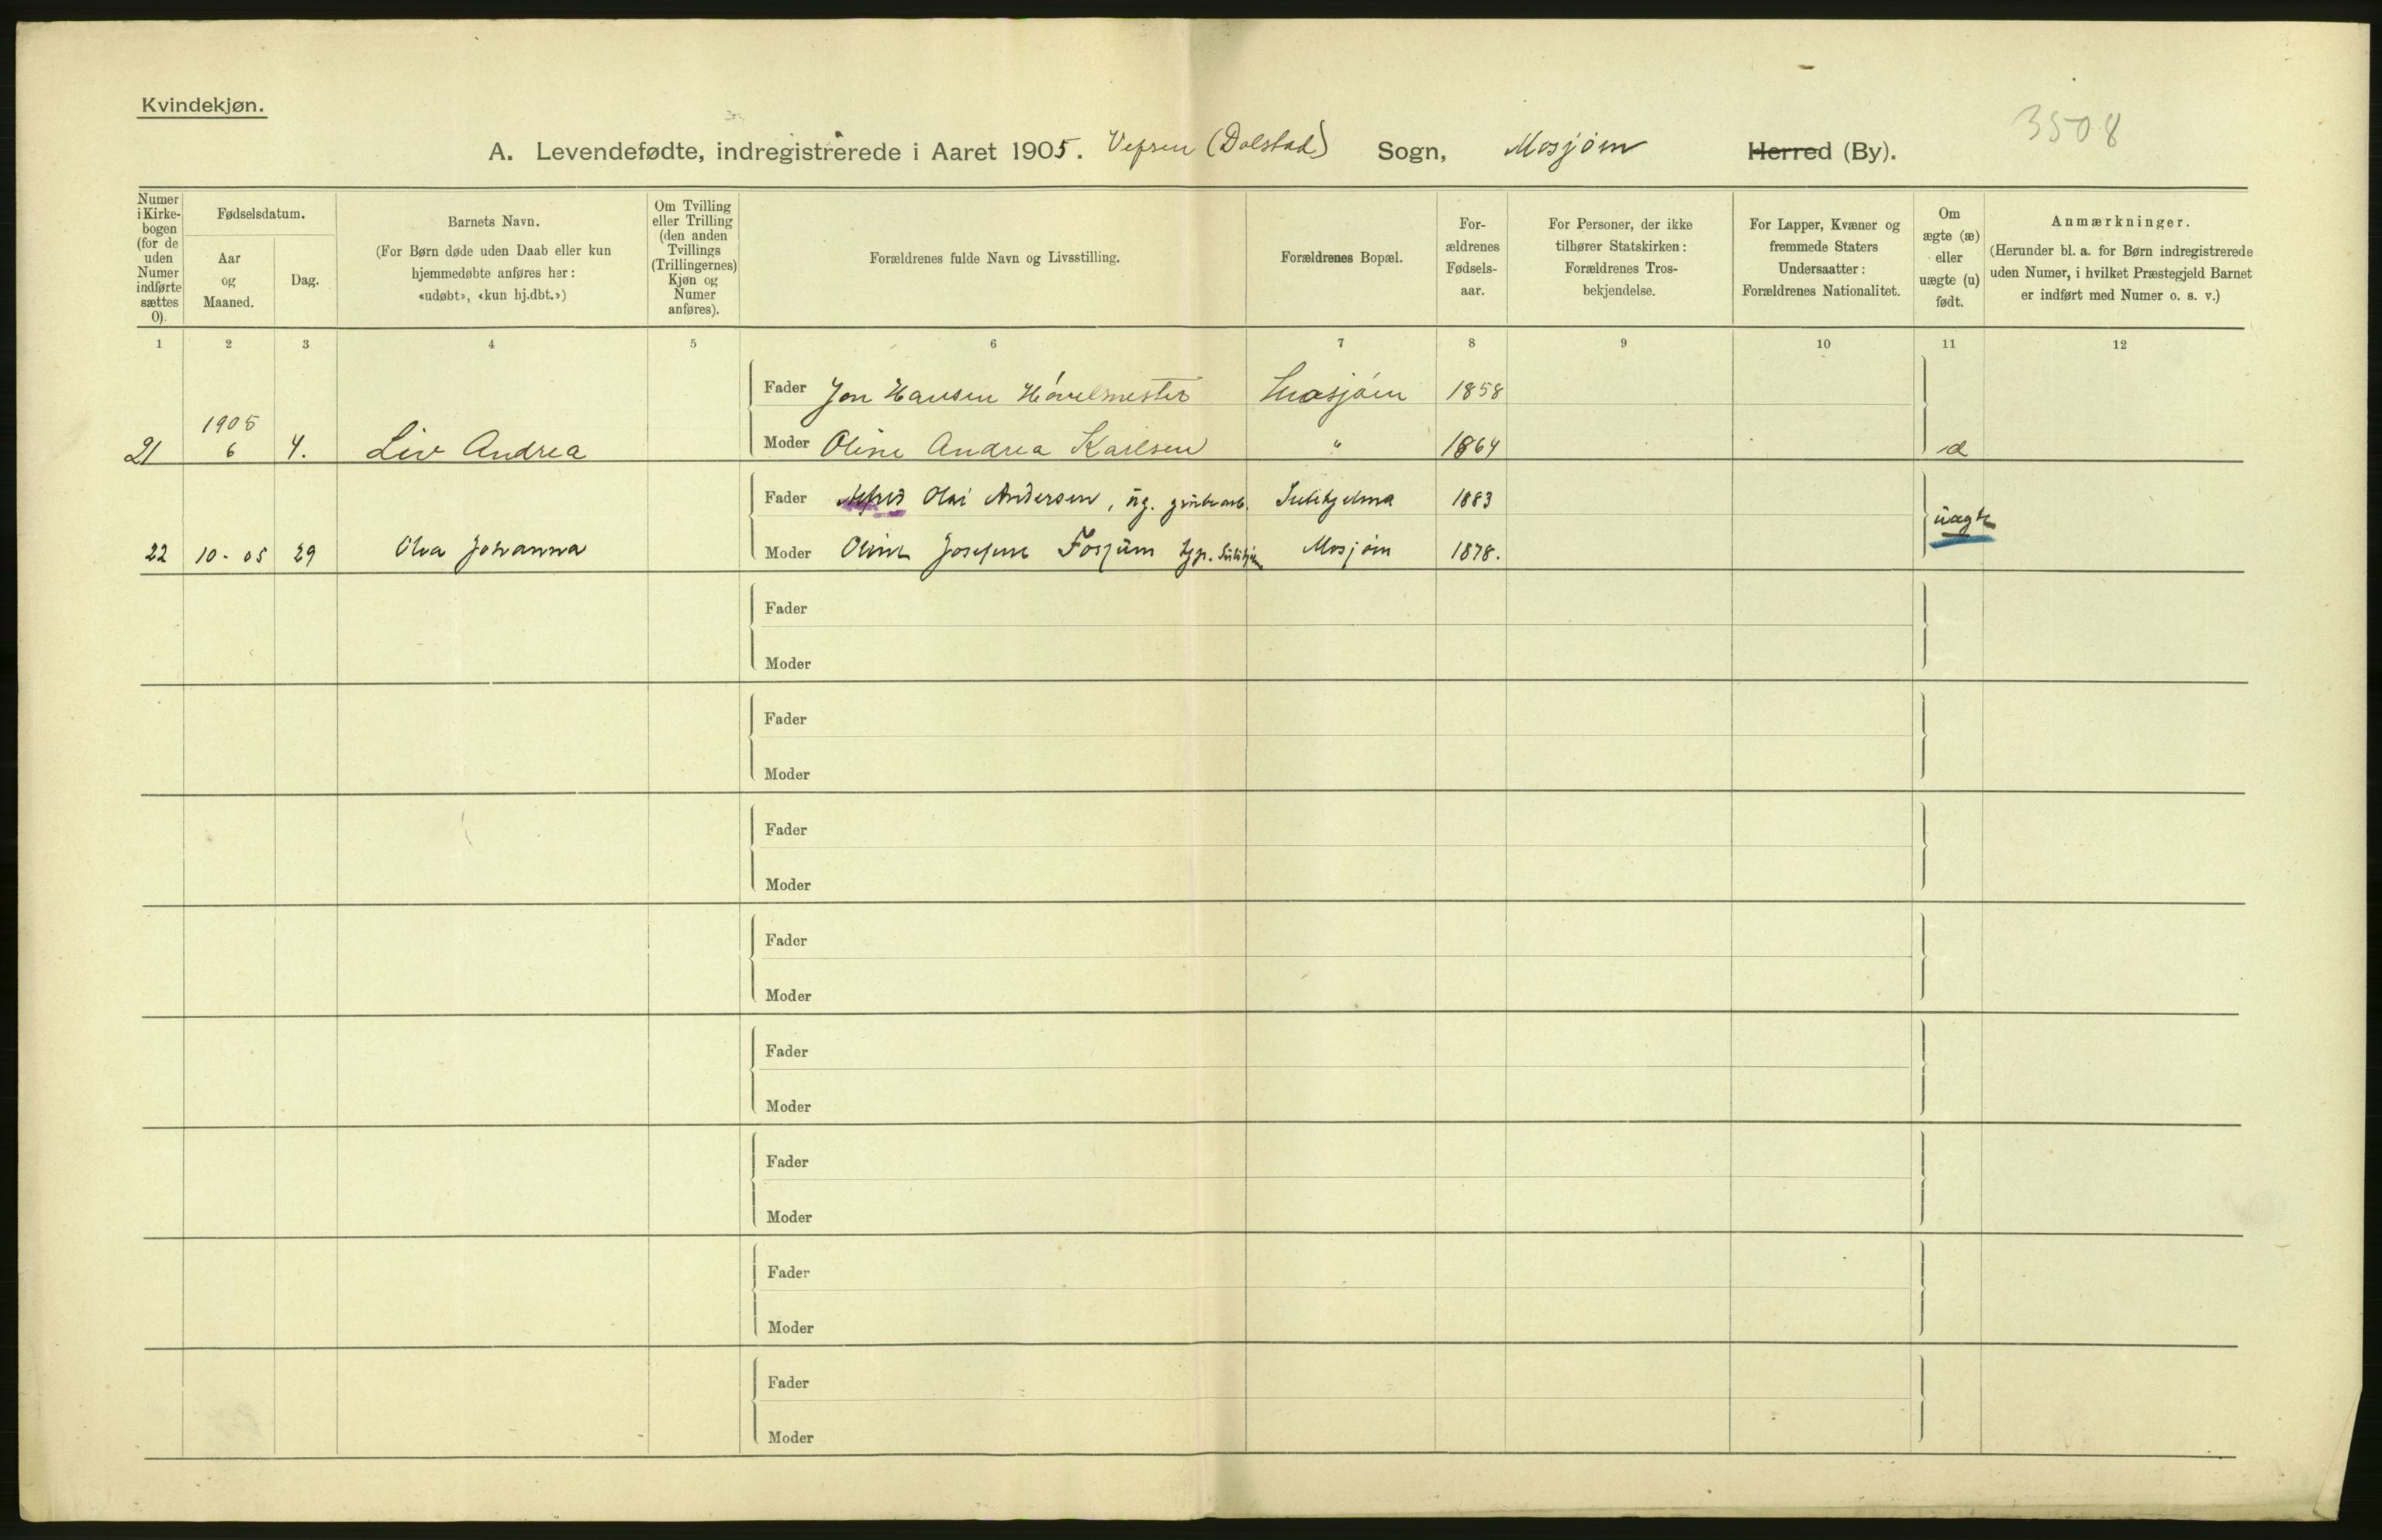 Kvindekjøn.
3508
A. Levendefødte, indregistrerede i Aaret 1905. Vefsen (Dolstad) Sogn, Mosjøen Herred (By).
Numer i Kirke-bogen (for de uden Numer indførte sættes 0).
Fødselsdatum.
Aar og Maaned.
Dag.
Barnets Navn.
(For Børn døde uden Daab eller kun hjemmedøbte anføres her: «udøbt», «kun hj.dbt.»)
Om Tvilling eller Trilling (den anden Tvillings (Trillingernes) Kjøn og Numer anføres).
Forældrenes fulde Navn og Livsstilling.
Forældrenes Bopæl.
For-ældrenes Fødsels-aar.
For Personer, der ikke tilhører Statskirken: Forældrenes Tros-bekjendelse.
For Lapper, Kvæner og fremmede Staters Undersaatter: Forældrenes Nationalitet.
Om ægte (æ) eller uægte (u) født.
Anmærkninger.
(Herunder bl. a. for Børn indregistrerede uden Numer, i hvilket Præstegjeld Barnet er indført med Numer o. s. v.)
1 2 3 4 5 6 7 8 9 10 11 12
Fader Jon Hansen Høvelmester Mosjøen 1858
1905
21 6 4. Liv Andrea Moder Oline Andrea Karlsen " 1864 æ
Fader Alfred Olai Andersen, ug. grubearb. Sulitjelma 1883
uægte
22 10-05 29 Olva Johanna Moder Oline Josefine Mosjøen 1878.
Fader
Moder
Fader
Moder
Fader
Moder
Fader
Moder
Fader
Moder
Fader
Moder
Fader
Moder
Fader
Moder